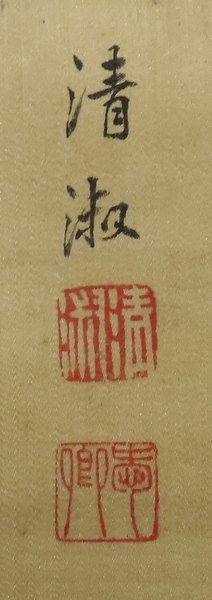 清淑
清淑